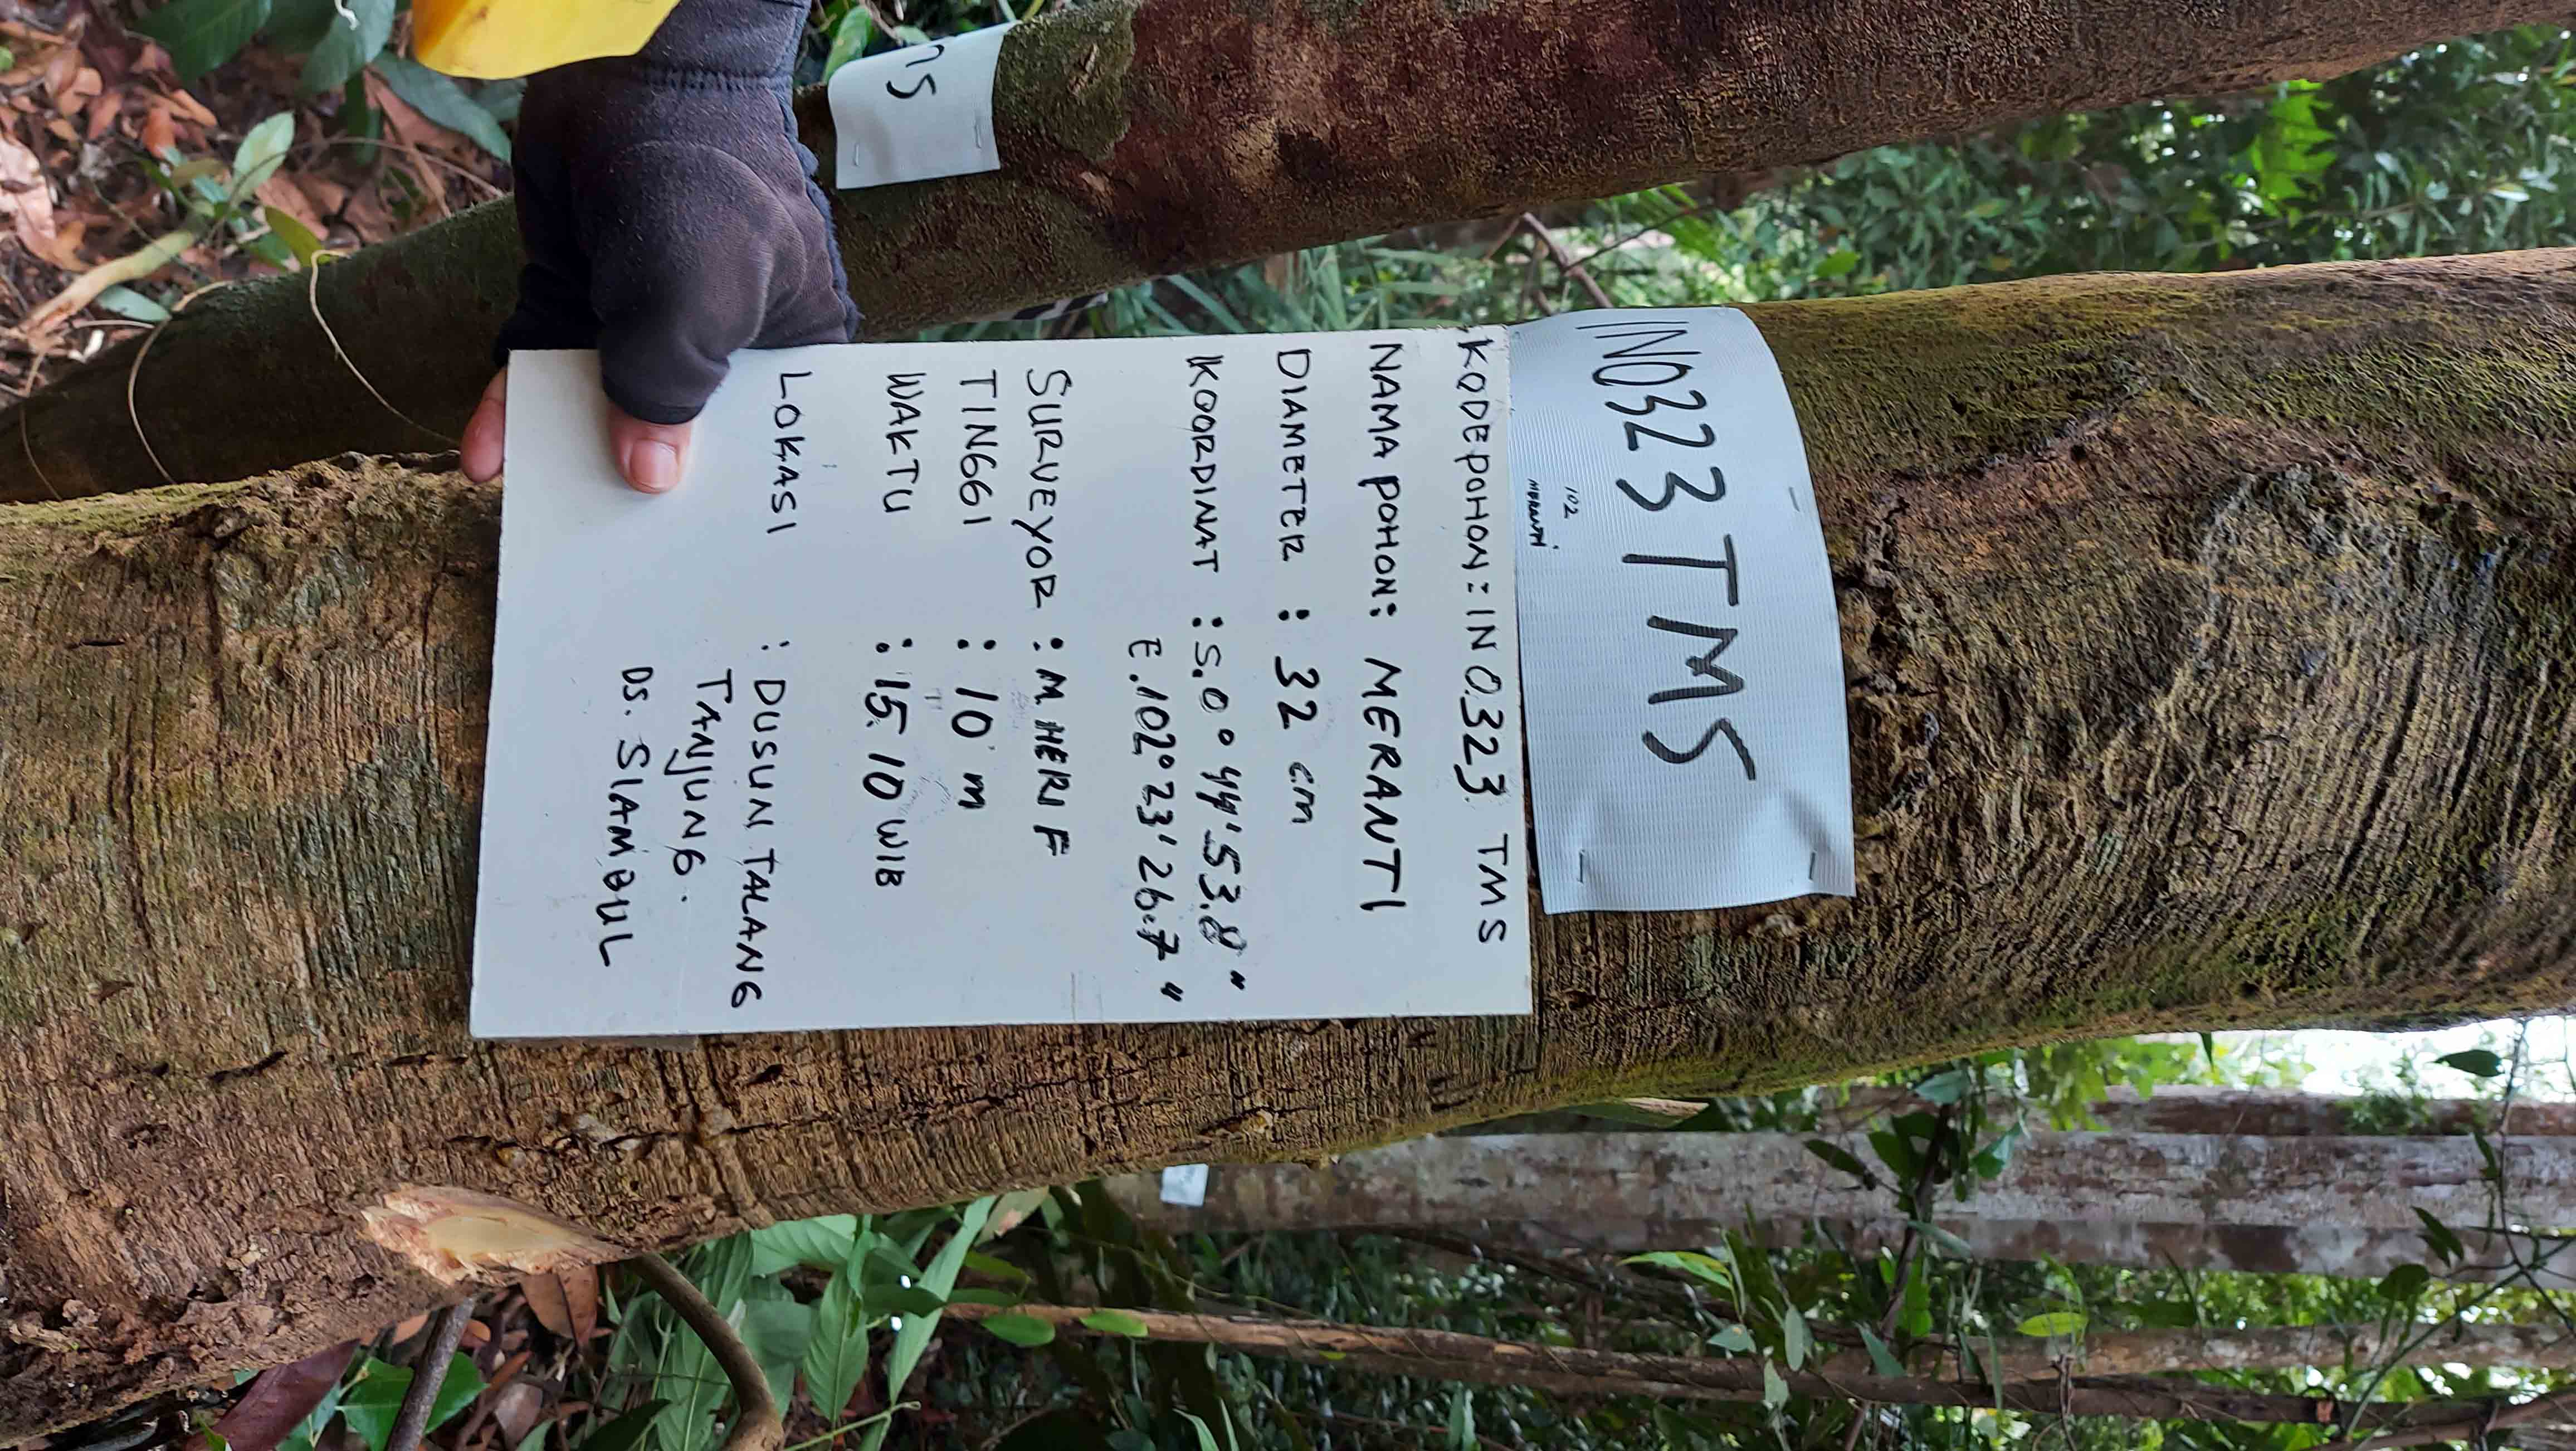 IN0323TMS
102
MERANTI
KODE POHON: IN 0323 TMS
NAMA POHON: MERANTI
DIAMETER : 32 cm
KOORDINAT : S.0° 44' 53.8"
E.102° 23' 26.7"
SURVEYOR : M HERI F
TINGGI : 10 m
WAKTU : 15.10 WIB
LOKASI : DUSUN TALANG
TANJUNG.
DS. SIAMBUL
MS